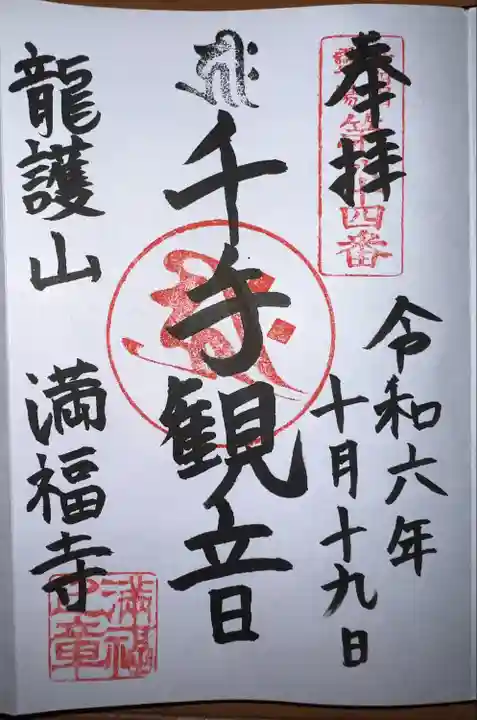 奉拝
十四番
令和六年
十月十九日
千手観音
龍護山 満福寺
満福寺章